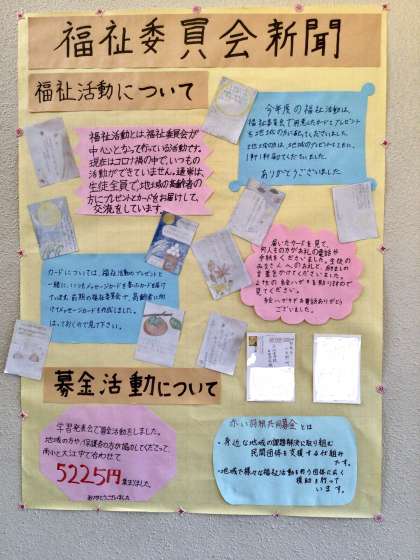 福祉委員会新聞
福祉活動について
福祉活動とは、福祉委員会が
中心となって行っている活動です。
現在はコロナ禍の中で、いつもの
活動ができていません。通常は、
生徒全員で地域の高齢者の
方にプレゼントとカードをお届けして、
交流をしています。
今年度の福祉活動は、
福祉委員会で用意したカードとプレゼント
を地域の方に配ってくださいました。
1軒1軒届けてくださいました。
ありがとうございました。
カードについては、福祉活動のプレゼントと
一緒に、いつもメッセージカードを書いたカードを届け
ています。前期の福祉委員会で、高齢者に向
けてメッセージカードを作成しました。
はっておくので見て下さい。
届いたカードを見て、
何人もの方がお礼の電話や
手紙をくださいました。生徒の
みなさんへのお礼と、励ましの
言葉をかけてくださいました。
見てください。
絵ハガキやお電話ありがとう
ございました。
募金活動について
学習発表会で募金活動をしました。
地域の方や保護者の方が協力してくださって、
南小と大江中で合わせて
5225円集まりました。
ありがとうございました
赤い羽根共同募金とは
・身近な地域の課題解決に取り組む
民間団体を支援する仕組み
です。
・地域で様々な福祉活動を行う団体に広く
援助を行って
います。